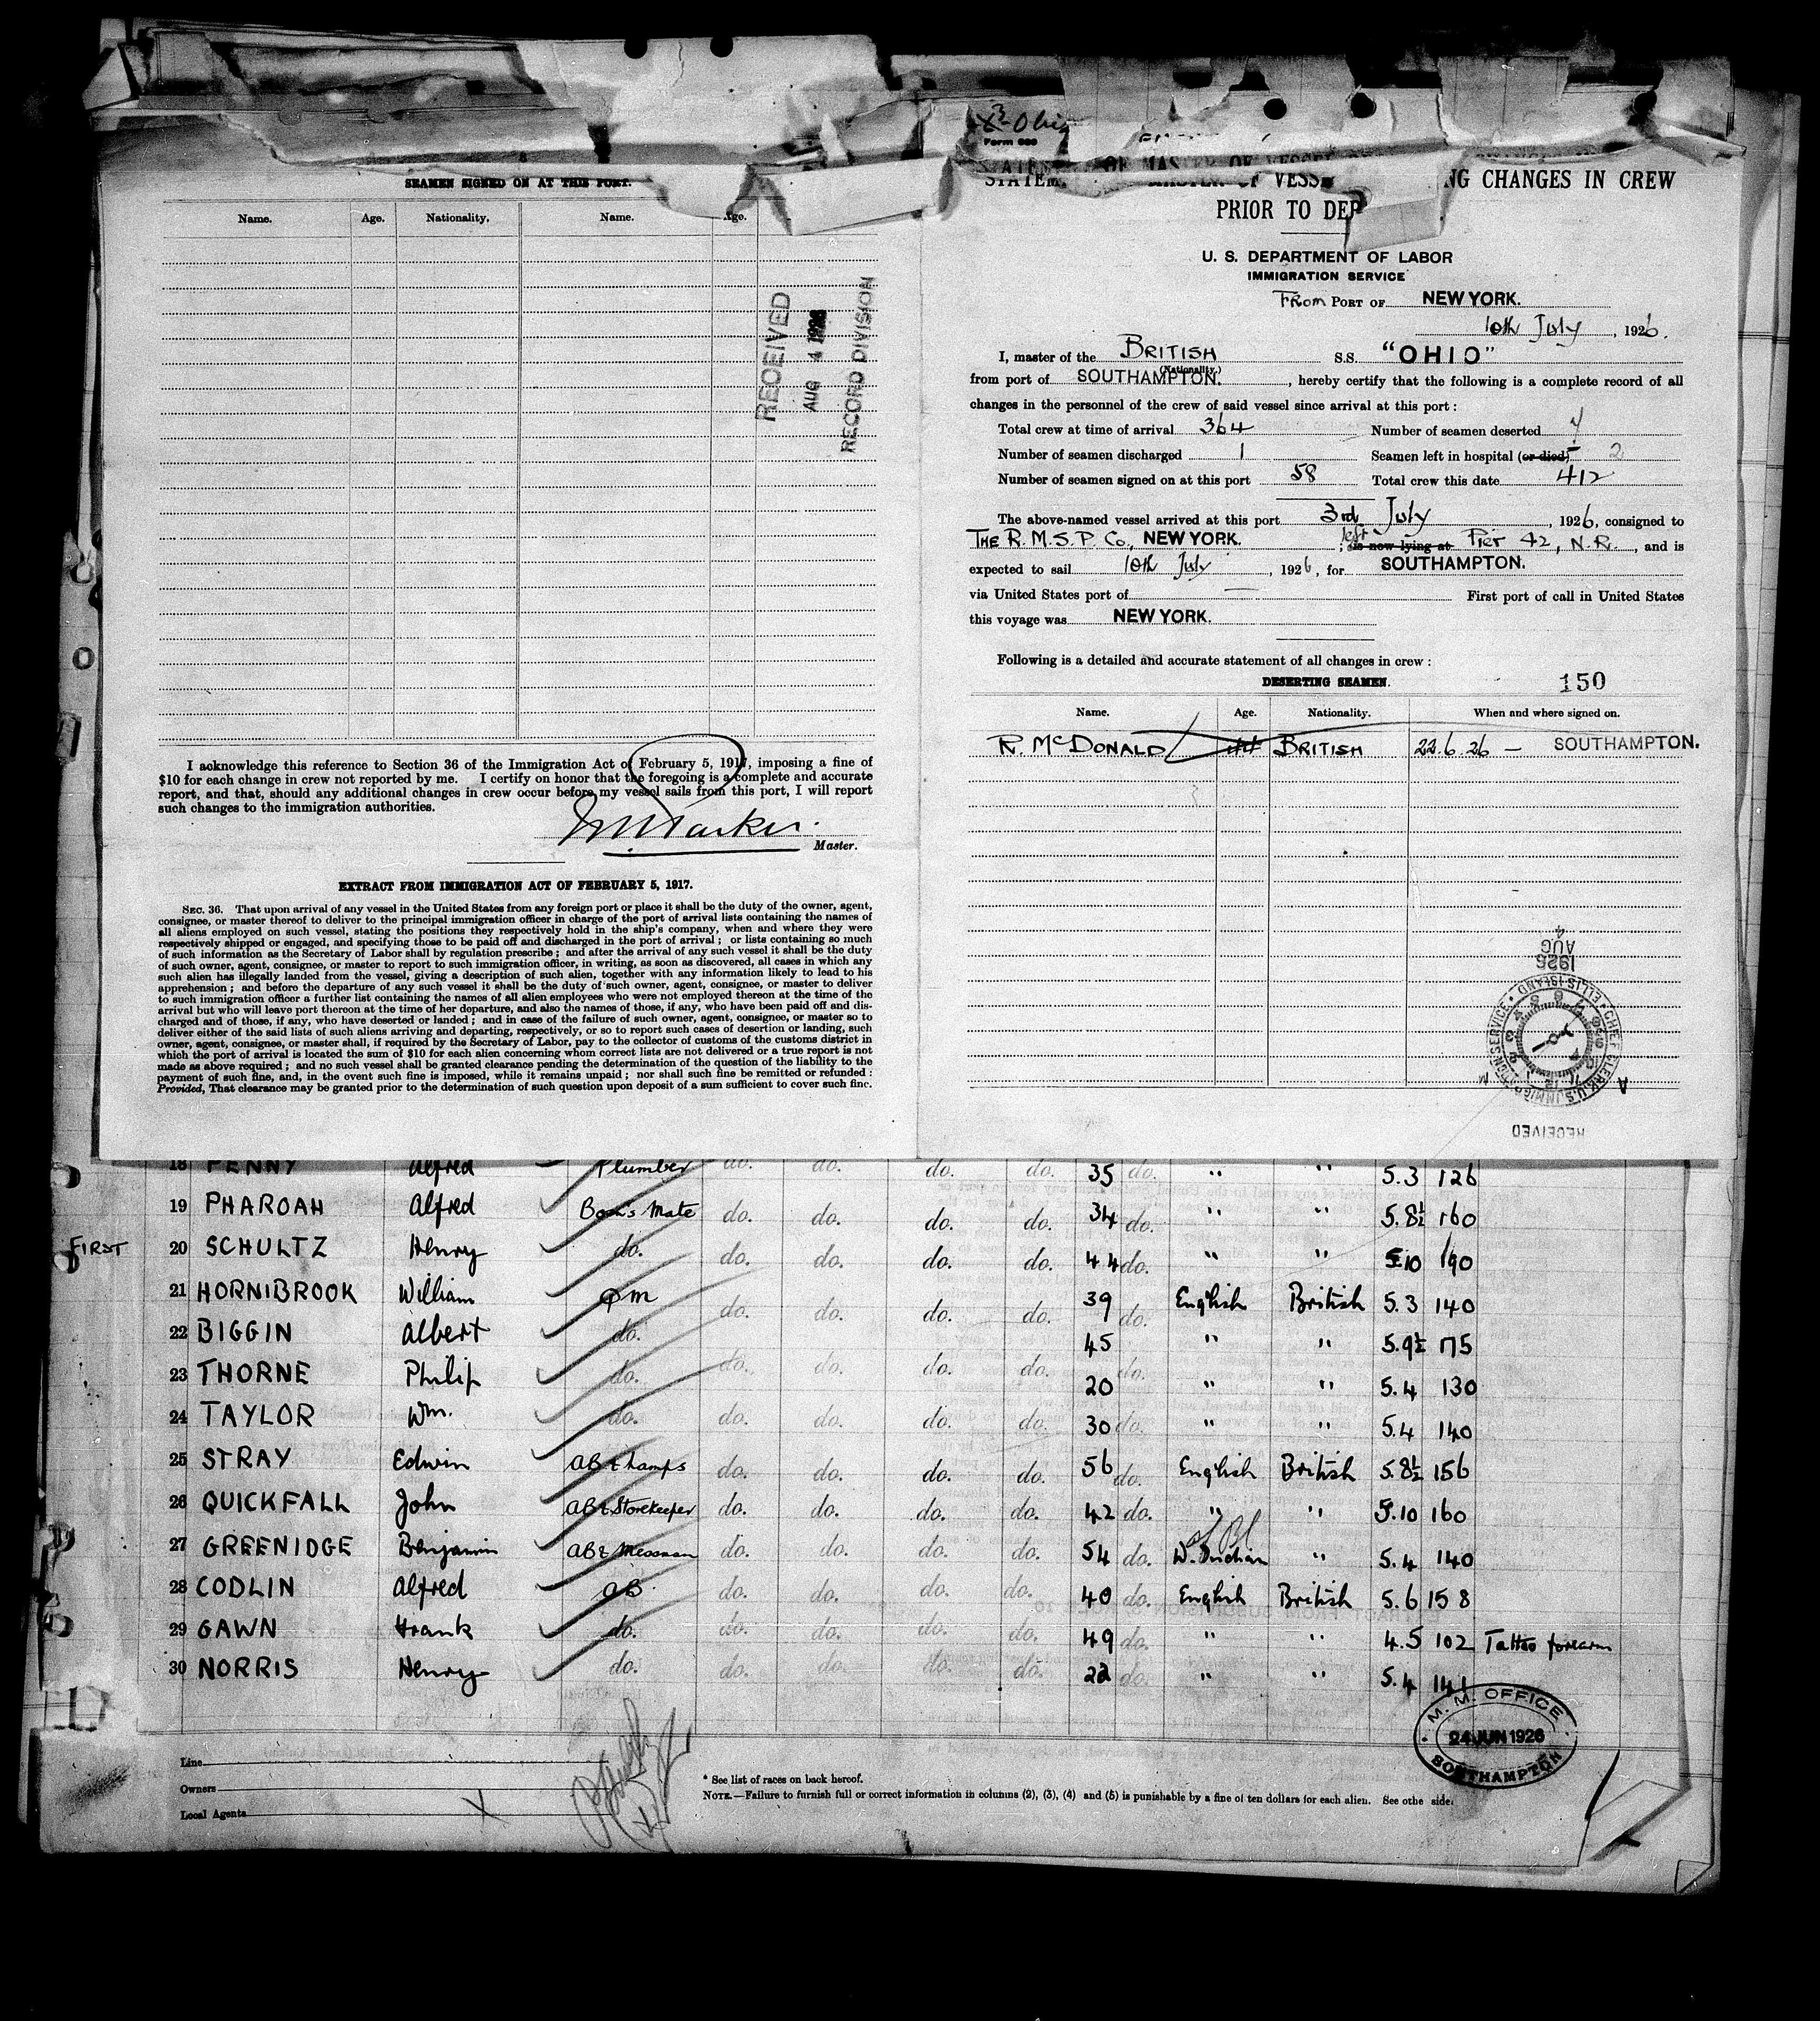 8
SEAMEN SIGNED ON AT THIS PORT.
Name. Age. Nationality. Name. Age.
RECEIVED
AUG 4 1926
RECORD DIVISION
I acknowledge this reference to Section 36 of the Immigration Act of February 5, 1917, imposing a fine of
$10 for each change in crew not reported by me. I certify on honor that the foregoing is a complete and accurate
report, and that, should any additional changes in crew occur before my vessel sails from this port, I will report
such changes to the immigration authorities.
Parker.
Master.
EXTRACT FROM IMMIGRATION ACT OF FEBRUARY 5, 1917.
SEC. 36. That upon arrival of any vessel in the United States from any foreign port or place it shall be the duty of the owner, agent,
consignee, or master thereof to deliver to the principal immigration officer in charge of the port of arrival lists containing the names of
all aliens employed on such vessel, stating the positions they respectively hold in the ship's company, when and where they were
respectively shipped or engaged, and specifying those to be paid off and discharged in the port of arrival ; or lists containing so much
of such information as the Secretary of Labor shall by regulation prescribe ; and after the arrival of any such vessel it shall be the duty
of such owner, agent, consignee, or master to report to such immigration officer, in writing, as soon as discovered, all cases in which any
such alien has illegally landed from the vessel, giving a description of such alien, together with any information likely to lead to his
apprehension ; and before the departure of any such vessel it shall be the duty of such owner, agent, consignee, or master to deliver
to such immigration officer a further list containing the names of all alien employees who were not employed thereon at the time of the
arrival but who will leave port thereon at the time of her departure, and also the names of those, if any, who have been paid off and dis-
charged and of those, if any, who have deserted or landed ; and in case of the failure of such owner, agent, consignee, or master so to
deliver either of the said lists of such aliens arriving and departing, respectively, or so to report such cases of desertion or landing, such
owner, agent, consignee, or master shall, if required by the Secretary of Labor, pay to the collector of customs of the customs district in
which the port of arrival is located the sum of $10 for each alien concerning whom correct lists are not delivered or a true report is not
made as above required ; and no such vessel shall be granted clearance pending the determination of the question of the liability to the
payment of such fine, and, in the event such fine is imposed, while it remains unpaid ; nor shall such fine be remitted or refunded :
Provided, That clearance may be granted prior to the determination of such question upon deposit of a sum sufficient to cover such fine.
Form 689
STATEM OF MASTER OF VESS NG CHANGES IN CREW
PRIOR TO DEP
U. S. DEPARTMENT OF LABOR
IMMIGRATION SERVICE
From PORT OF NEW YORK.
10th July, 1926.
I, master of the BRITISH S.S. "OHIO"
(Nationality.)
from port of SOUTHAMPTON., hereby certify that the following is a complete record of all
changes in the personnel of the crew of said vessel since arrival at this port :
Total crew at time of arrival 364 Number of seamen deserted 7
Number of seamen discharged 1 Seamen left in hospital (or died) 2
Number of seamen signed on at this port 58 Total crew this date 412
The above-named vessel arrived at this port 3rd July, 1926, consigned to
THE R.M.S.P. Co., NEW YORK. ; left is now lying at Pier 42, N.R., and is
expected to sail 10th July, 1926, for SOUTHAMPTON.
via United States port of — First port of call in United States
this voyage was NEW YORK.
Following is a detailed and accurate statement of all changes in crew :
DESERTING SEAMEN. 150
Name. Age. Nationality. When and where signed on.
R. McDONALD 44 BRITISH 22.6.26 — SOUTHAMPTON.
1926
AUG
4
CHIEF CLERK, U.S. IMMIGRATION SERVICE • ELLIS ISLAND •
A M
RECEIVED
18 PENNY Alfred Plumber do. do. do. do. 35 do. " " 5.3 126
19 PHAROAH Alfred Bosn's Mate do. do. do. do. 34 do. " " 5.8½ 160
FIRST 20 SCHULTZ Henry do. do. do. do. do. 44 do. " " 5.10 190
21 HORNIBROOK William QM do. do. do. do. 39 do. English British 5.3 140
22 BIGGIN Albert do. 45 " " 5.9½ 175
23 THORNE Philip do. do. do. do. do. 20 do. " " 5.4 130
24 TAYLOR Wm. do. do. do. do. do. 30 do. " " 5.4 140
25 STRAY Edwin AB & Lamps do. do. do. do. 56 do. English British 5.8½ 156
26 QUICKFALL John AB & Storekeeper do. do. do. do. 42 do. " " 5.10 160
27 GREENIDGE Benjamin AB & Messman do. do. do. do. 54 do. W. Indian " 5.4 140
28 CODLIN Alfred AB do. do. do. do. 40 do. English British 5.6 158
29 GAWN Frank do. do. do. do. do. 49 do. " " 4.5 102 Tattoo forearm
30 NORRIS Henry do. do. do. do. do. 22 do. " " 5.4 141
M. M. OFFICE
24 JUN 1926
SOUTHAMPTON
Line
Owners
Local Agents
* See list of races on back hereof.
NOTE.—Failure to furnish full or correct information in columns (2), (3), (4) and (5) is punishable by a fine of ten dollars for each alien. See othe side.